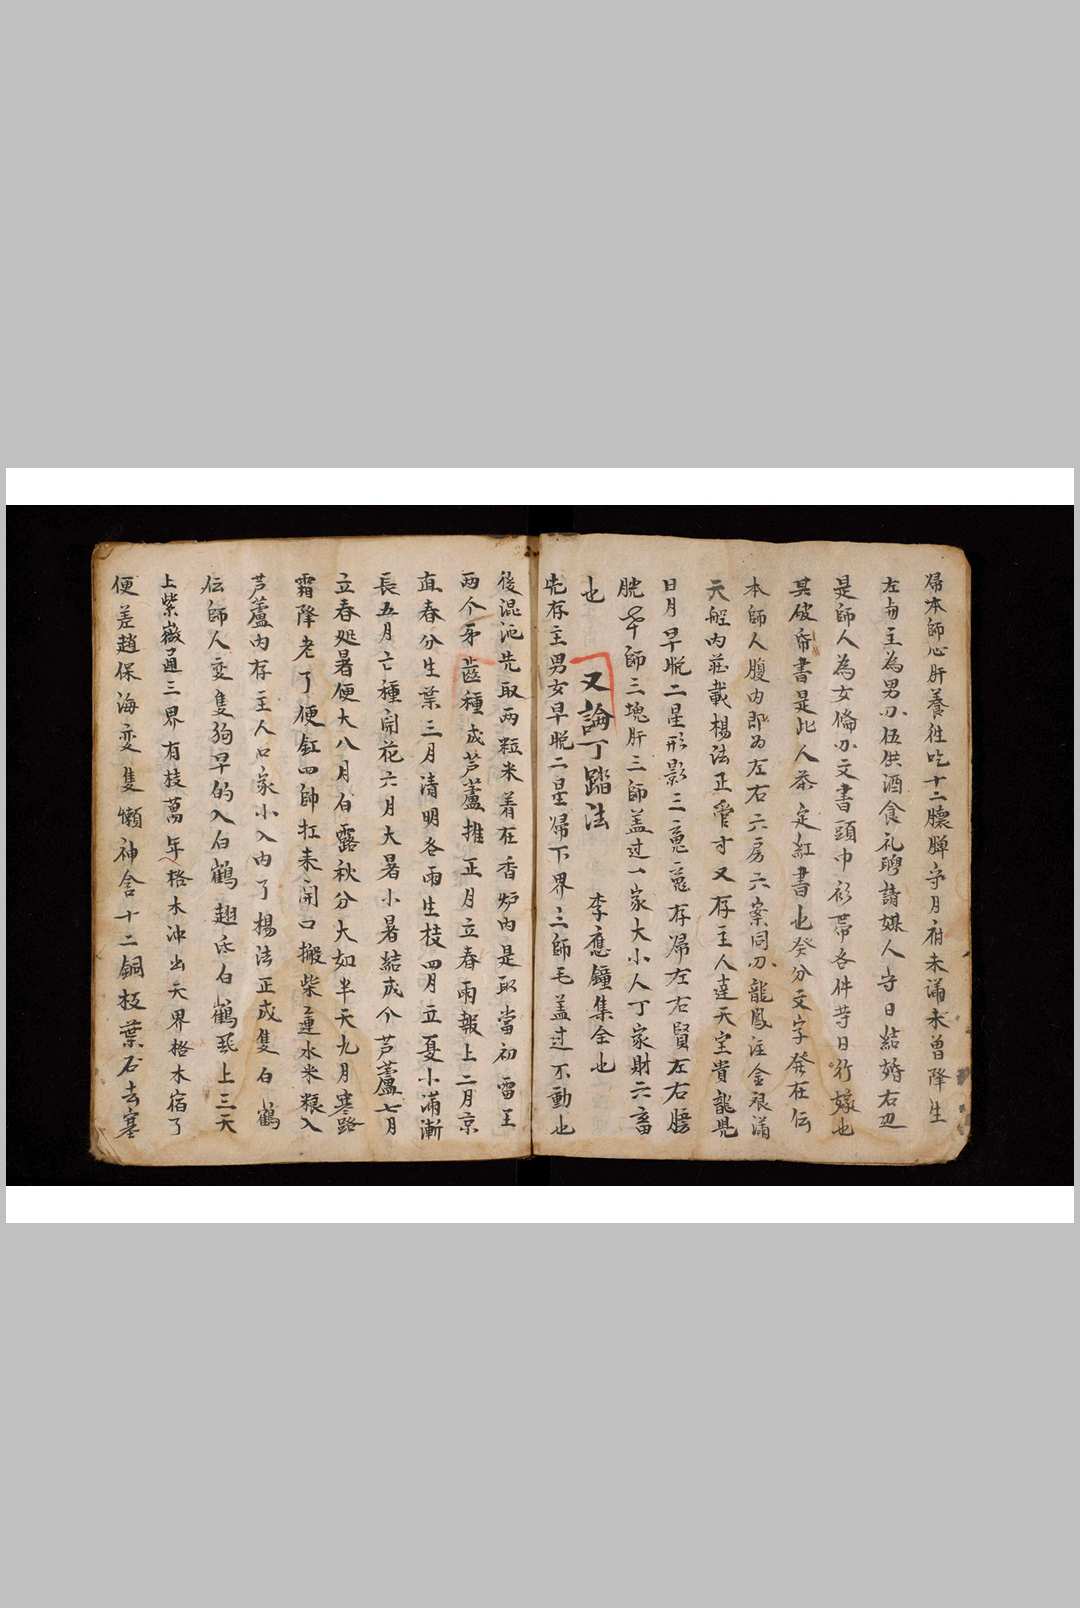 本師心肝養往吃十二臕胛守月府未滿未曾降生
左毋主為男办伍供酒食礼聘請媒人守日結婚右边
是師人為女俻办文書頭巾衫帶各件苛日行嫁也
其破帋書是此人茶定紅書也癸分文字發在伝
本師人腹内即为左右六房六案同办龍鳳注金艮滿
天船内莊載楊法正管寸又存主人達天宝貴龍凳
日月早脱二星形影三䰟䰟存帰左右賢左右腰
脱 師三塊肝三師盖过一家大小人丁家財六畜
也
又論丁踏法 李應鐘集全也
先存主男女早脱二星帰下界三師毛盖过不動也
後混沌先取兩粒米着在香炉内是取當初雷王
兩个牙齒種成芦蘆推正月立春雨報上二月京
直春分生葉三月清明各雨生枝四月立夏小滿漸
長五月亡種開花六月大暑小暑結成个芦蘆七月
立春処暑便大八月白露秋分大如半天九月寒路
霜降老了便釭四帥扛耒開口搬柴運水米粮入
芦蘆内存主人口家小入内了楊法正成隻白鶴
伝師人变隻狗早的入白鶴翅底白鶴飛上三天
上紫薇通三界有枝萬年格木沖出天界格木宿了
便差趙保海变隻懶神舍十二銅板葉石去塞